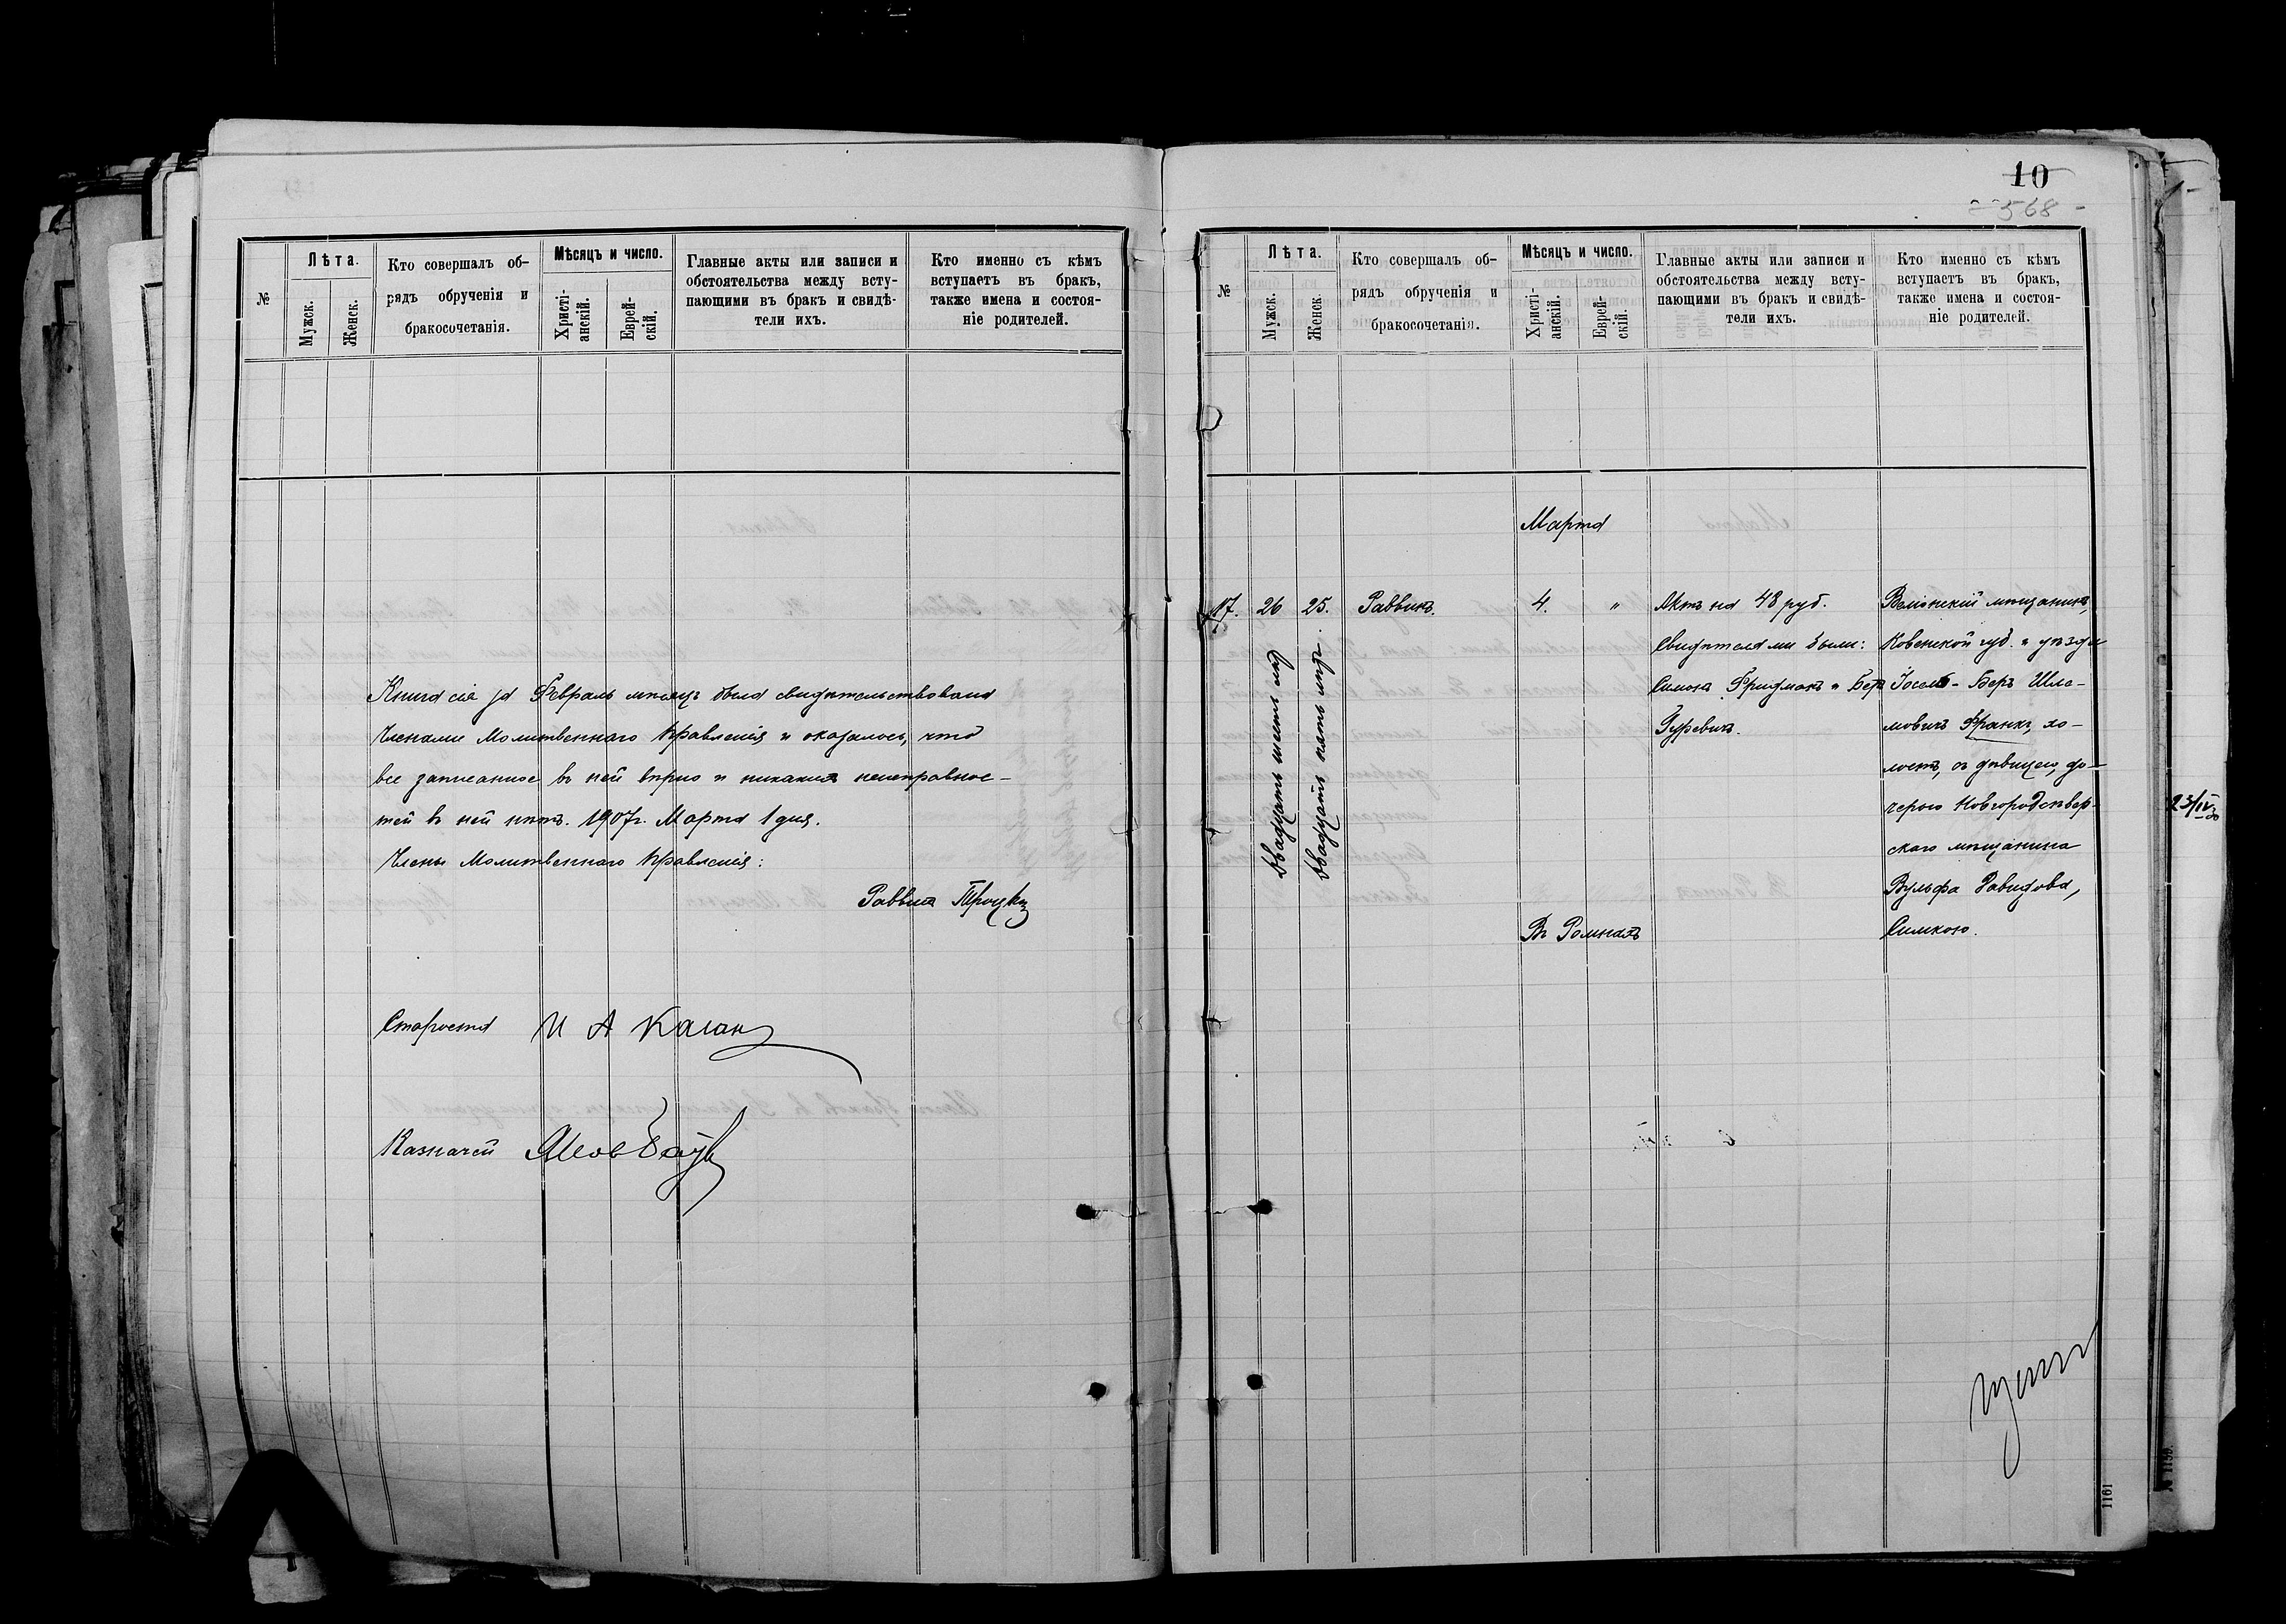 №
Лѣта.
Мужск.
Женск.
Кто совершалъ об-
рядъ обрученія и
бракосочетанія.
Мѣсяцъ и число.
Христі-
анскій.
Еврей-
скій.
Главные акты или записи и
обстоятельства между всту-
пающими въ бракъ и свидѣ-
тели ихъ.
Кто именно съ кѣмъ
вступаетъ въ бракъ,
также имена и состоя-
ніе родителей.
Книга сія за Февраль мѣсяцъ была свидѣтельствована
Членами Молитвеннаго Правленія и оказалось, что
все записанное въ ней вѣрно и никакихъ неисправнос-
тей въ ней нѣтъ. 1907г. Марта 1 дня.
Члены Молитвеннаго Правленія:
Раввинъ Троцкій
Староста И А Каган
Казначей
10
568
№
Лѣта.
Мужск.
Женск.
Кто совершалъ об-
рядъ обрученія и
бракосочетанія.
Мѣсяцъ и число.
Христі-
анскій.
Еврей-
скій.
Главные акты или записи и
обстоятельства между всту-
пающими въ бракъ и свидѣ-
тели ихъ.
Кто именно съ кѣмъ
вступаетъ въ бракъ,
также имена и состоя-
ніе родителей.
Марта
17.
26
двадцать шесть лѣт
25.
двадцать пять лѣтъ.
Раввинъ.
4.
"
Въ Ромнахъ
Актъ на 48 руб.
Свидѣтелями были:
Симонъ Фридманъ и Бер
Гуревичъ.
Веліонскій мѣщанинъ,
Ковенской губ. и уѣзда
Іосель-Беръ Шле-
мовичъ Франкъ, хо-
лостъ, съ дѣвицею, до-
черью Новгородсѣвер-
скаго мѣщанина
Вульфа Давидова,
Симкою.
1161
№ 1159.